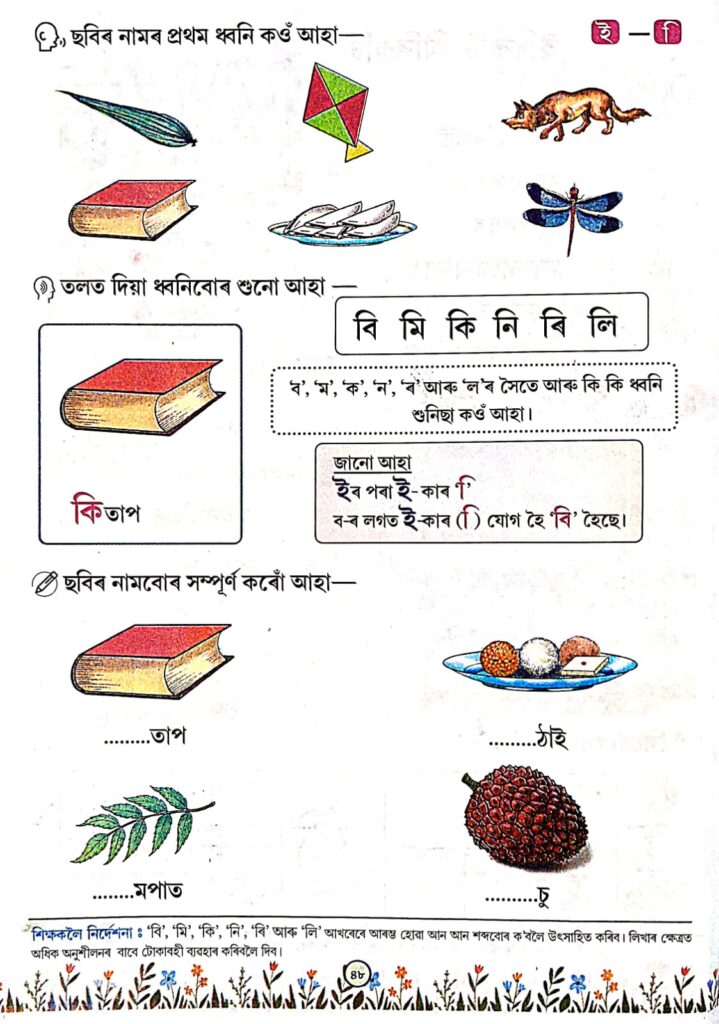 ছবিৰ নামৰ প্ৰথম ধ্বনি কওঁ আহা—
ই – ি
তলত দিয়া ধ্বনিবোৰ শুনো আহা —
বি মি কি নি ৰি লি
কিতাপ
'ব', 'ম', 'ক', 'ন', 'ৰ' আৰু 'ল'ৰ সৈতে আৰু কি কি ধ্বনি
শুনিছা কওঁ আহা।
জানো আহা
ইৰ পৰা ই-কাৰ 'ি'
ব-ৰ লগত ই-কাৰ (ি) যোগ হৈ 'বি' হৈছে।
ছবিৰ নামবোৰ সম্পূৰ্ণ কৰোঁ আহা—
.........তাপ
.........ঠাই
........মপাত
..........চু
শিক্ষকলৈ নিৰ্দেশনা : 'বি', 'মি', 'কি', 'নি', 'ৰি' আৰু 'লি' আখৰেৰে আৰম্ভ হোৱা আন আন শব্দবোৰ ক'বলৈ উৎসাহিত কৰিব। লিখাৰ ক্ষেত্ৰত
অধিক অনুশীলনৰ বাবে টোকাবহী ব্যৱহাৰ কৰিবলৈ দিব।
৪৮